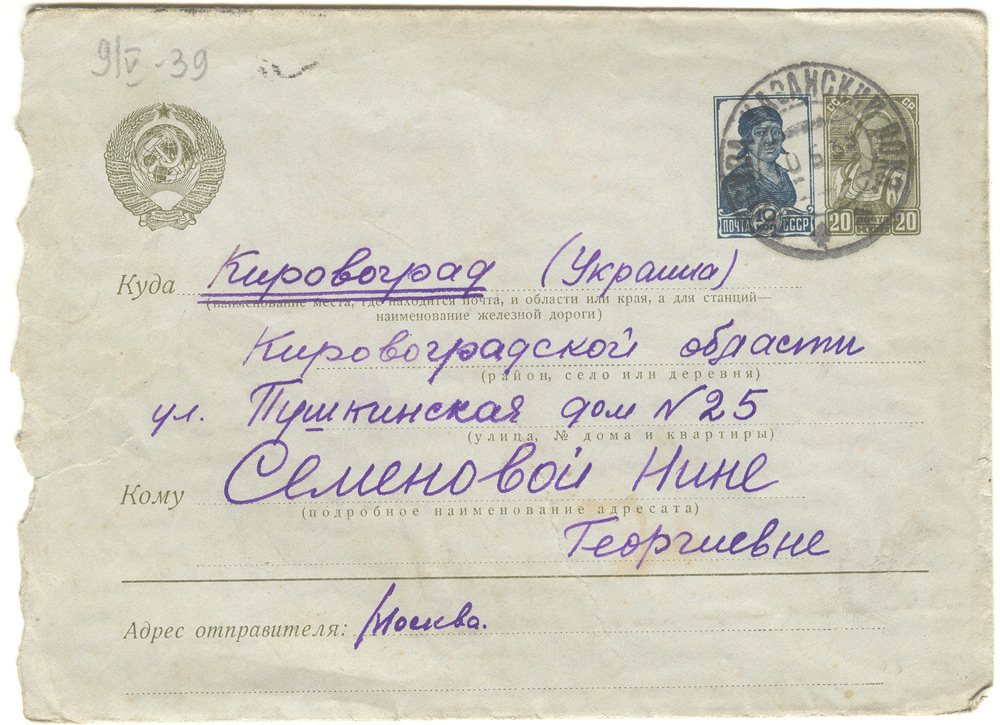 9/V-39
КАЗАНСКИЙ ВОКЗ
ПОЧТА 10 КОП СССР
20 ПОЧТА 20
Куда Кировоград (Украина)
(наименование места, где находится почта, и области или края, а для станций—
наименование железной дороги)
Кировоградской области
(район, село или деревня)
ул. Пушкинская дом N 25
(улица, № дома и квартиры)
Кому Семеновой Нине
(подробное наименование адресата)
Георгиевне
Адрес отправителя: Москва.